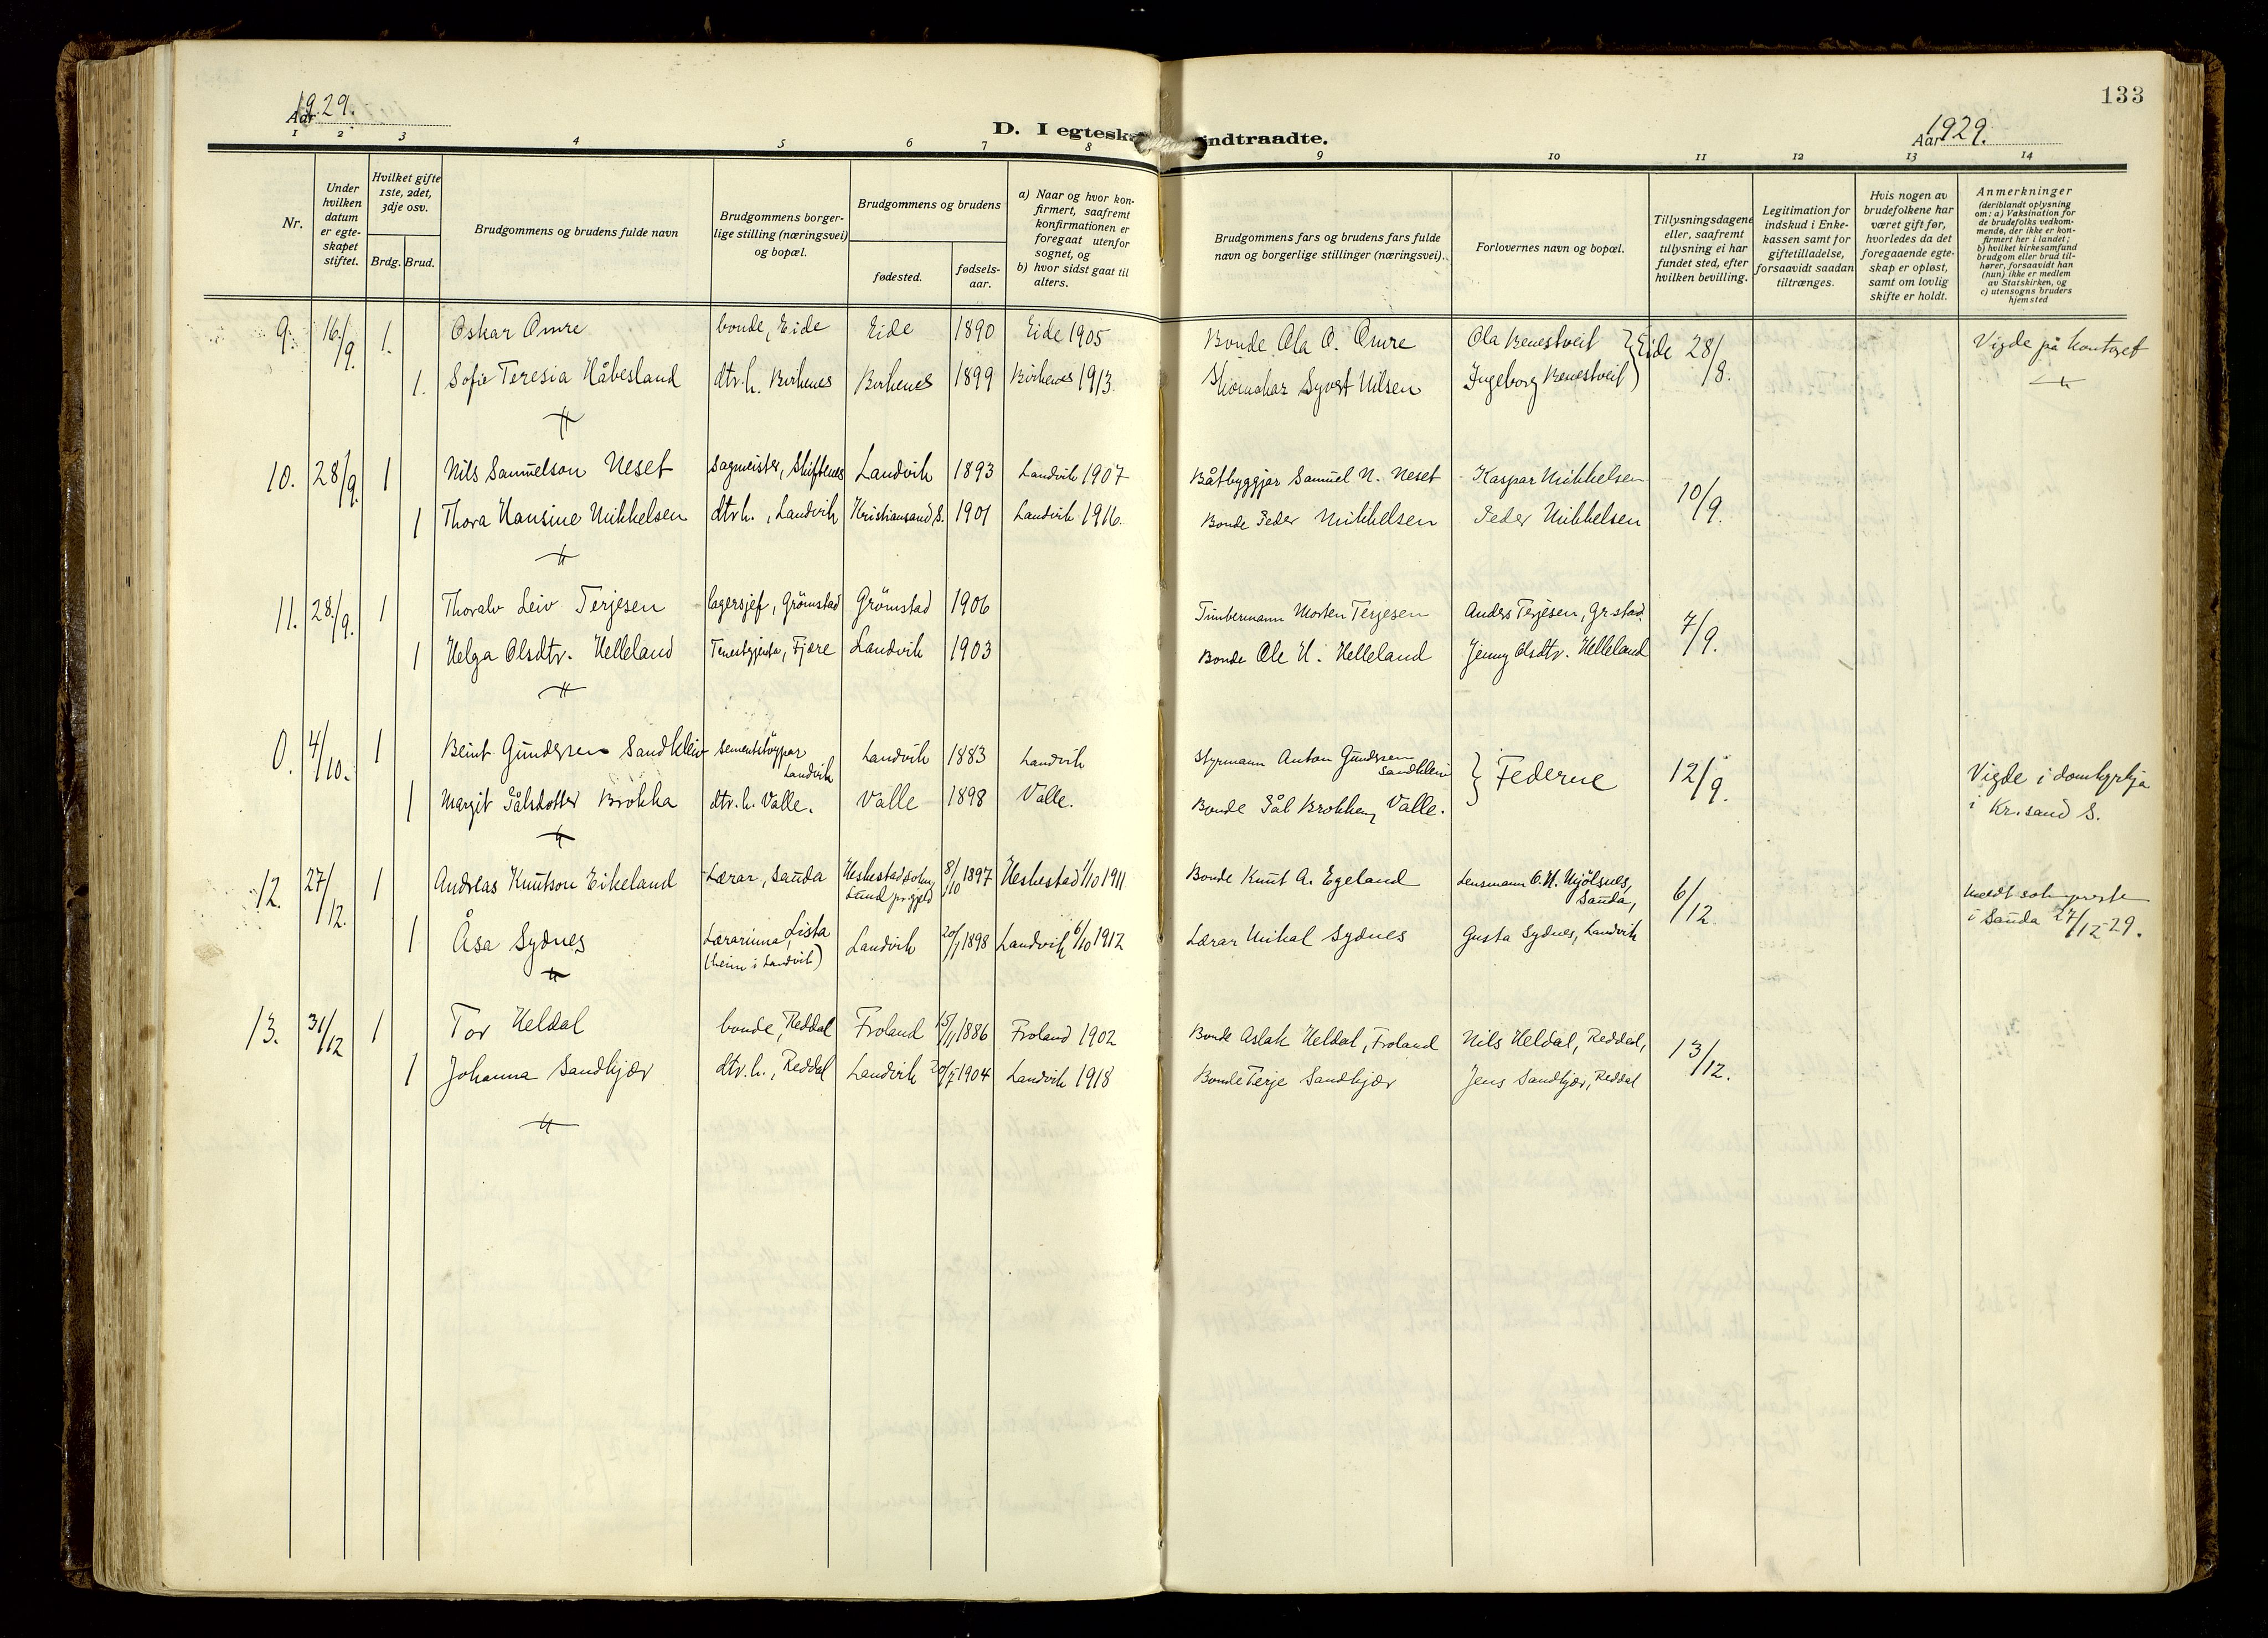 133
Aar 1929.
D. I egtesk
ndtraadte.
Aar 1929.
1 2 3 4 5 6 7 8 9 10 11 12 13 14
Nr.
Under hvilken datum er egteskapet stiftet.
Hvilket gifte 1ste, 2det, 3dje osv.
Brdg. Brud.
Brudgommens og brudens fulde navn
Brudgommens borgerlige stilling (næringsvei) og bopæl.
Brudgommens og brudens
fødested.
fødselsaar.
a) Naar og hvor konfirmert, saafremt konfirmationen er foregaat utenfor sognet, og
b) hvor sidst gaat til alters.
Brudgommens fars og brudens fars fulde navn og borgerlige stillinger (næringsvei).
Forlovernes navn og bopæl.
Tillysningsdagene eller, saafremt tillysning ei har fundet sted, efter hvilken bevilling.
Legitimation for indskud i Enkekassen samt for giftetilladelse, forsaavidt saadan tiltrænges.
Hvis nogen av brudefolkene har været gift før, hvorledes da det foregaaende egteskap er opløst, samt om lovlig skifte er holdt.
Anmerkninger (deriblandt oplysning om: a) Vaksination for de brudefolks vedkommende, der ikke er konfirmert her i landet; b) hvilket kirkesamfund brudgom eller brud tilhører, forsaavidt han (hun) ikke er medlem av Statskirken, og c) utensogns bruders hjemsted
9. 16/9. 1. Oskar Omre bonde, Eide Eide 1890 Eide 1905 Bonde Ola O. Omre Ola Benestveit } Eide 28/8. Vigde på kontoret
1. Sofie Teresia Håbesland dtr. h. Birkenes Birkenes 1899 Birkenes 1913. Skomakar Syvert Nilsen Ingeborg Benestveit
10. 28/9. 1 Nils Samuelson Neset Sagmeister, Skiftenes Landvik 1893 Landvik 1907 Båtbyggjar Samuel N. Neset Kaspar Mikkelsen 10/9.
1 Thora Hansine Mikkelsen dtr. h., Landvik Kristiansand S. 1901 Landvik 1916. Bonde Peder Mikkelsen Peder Mikkelsen
11. 28/9. 1 Thoralv Leiv Terjesen lagersjef, Grömstad Grömstad 1906 Timbermann Morten Terjesen Anders Terjesen, Gr.stad. 7/9.
1 Helga Olsdtr. Helleland Tenestgjenta, Fjære Landvik 1903 Bonde Ole H. Helleland Jenny Olsdtr. Helleland
0. 4/10. 1 Beint Gundersen Sandkleiv sementstøypar Landvik Landvik 1883 Landvik Styrmann Anton Gundersen Sandkleiv } Federne 12/9. Vigde i domkyrkja
1 Margit Pålsdotter Brokka dtr. h. Valle. Valle 1898 Valle. Bonde Pål Brokken, Valle. i Kr.sand S.
12. 27/12. 1 Andreas Knutson Eikeland Lærar, Sauda Heskestad sokn, Lund pr.gjeld 8/10 1897 Heskestad 1/10 1911 Bonde Knut A. Egeland Lensmann O. H. Mjölsnes, Sauda, 6/12. Meldt sokneprest
1 Åsa Sydnes Lærarinna, Lista (heim i Landvik) Landvik 20/1 1898 Landvik 6/10 1912 Lærar Mikal Sydnes Gusta Sydnes, Landvik i Sauda 27/12-29.
13. 31/12 1 Tor Heldal bonde, Reddal Froland 15/11 1886 Froland 1902 Bonde Aslak Heldal, Froland Nils Heldal, Reddal, 13/12.
1 Johanna Sandkjær dtr. h., Reddal Landvik 20/5 1904 Landvik 1918 Bonde Terje Sandkjær Jens Sandkjær, Reddal